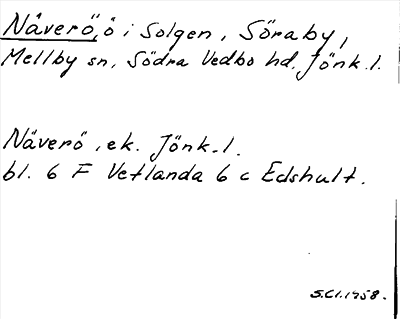 Nåverö, ö i Solgen, Söraby,
Mellby sn, Södra Vedbo hd. Jönk.l.
Näverö, ek. Jönk.l.
bl. 6 F Vetlanda 6 c Edshult.
S.Cl.1958.